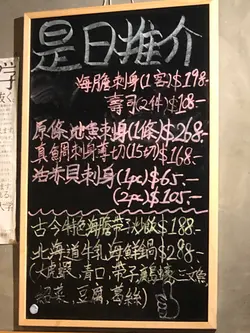 是日推介
海膽刺身(1客)$198.-
壽司(2件)$108.-
原條地魚刺身(1條)$268.-
真鯛刺身薄切(15切)$168.-
活米貝刺身(1pc)$65.-
(2pc)$105.-
古今牛色海膽帶子炒飯$188.-
北海道牛乳海鮮鍋$288.-
(大虎蝦,青口,帶子,鯛魚,三文魚
招菜,豆腐,葛絲)